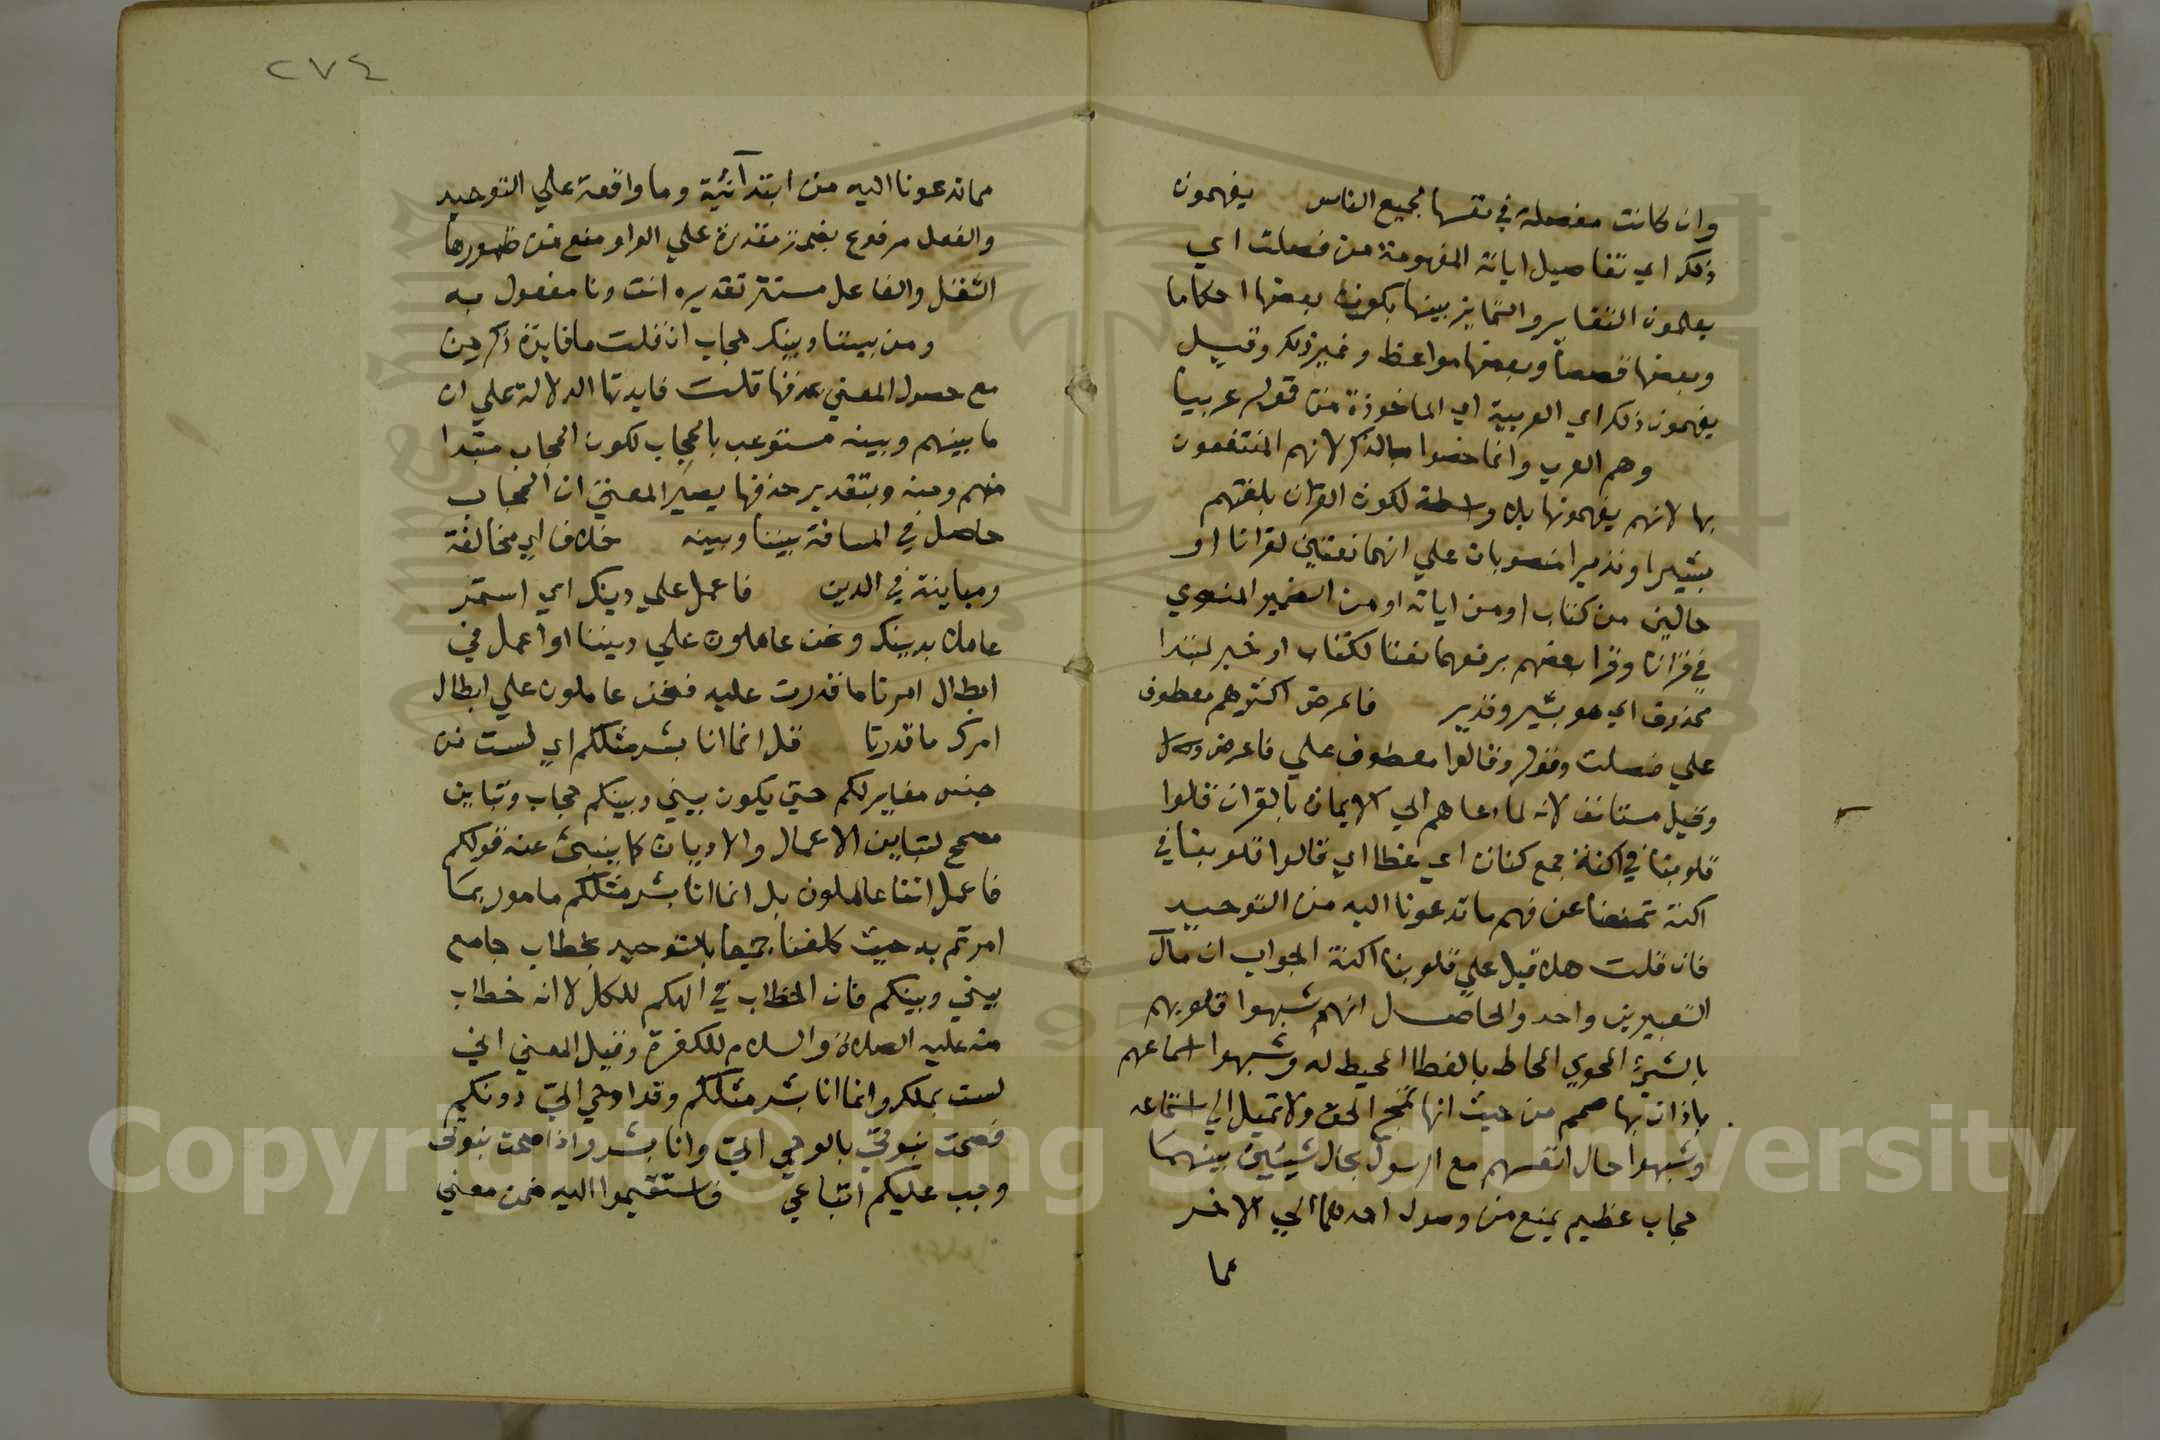 وان كانت مفصلة في نفسها لجميع الناس يفهمون
ذلك اي تفاصيل اياته المفهومة من فصلت اي
يعلمون التغاير والتمايز بينها بكون بعضها احكاما
وبعضها قصصا وبعضها مواعظ وغير ذلك وقيل
يفهمون ذلك اي العربية اي الماخوذة من قوله عربيا
وهم العرب وانما خصوا بالذكر لانهم المنتفعون
بها لانهم يفهمونها بلا واسطة لكون القران بلغتهم
بشيرا ونذيرا منصوبان علي انهما نعتين لقرانا او
حالين من كتاب او من اياته او من الضمير المنوي
في قرانا وقرا بعضهم برفعهما نعتا لكتاب او خبر لمبتدا
محذوف اي هو بشير ونذير فاعرض اكثرهم معطوف
علي فصلت وقوله وقالوا معطوف علي فاعرض
وقيل مستانف لانه لما دعاهم الي الايمان بالقران قالوا
قلوبنا في اكنة جمع كنان اي غطا اي قالوا قلوبنا في
اكنة تمنعنا عن فهم ما تدعونا اليه من التوحيد
فان قلت هلا قيل علي قلوبنا اكنة الجواب ان مآل
التعبيرين واحد والحاصل انهم شبهوا قلوبهم
بالشيء المحوي المحاط بالغطا المحيط له وشبهوا اسماعهم
باذان بها صمم من حيث انها تمج الحق ولا تميل الي استماعه
وشبهوا حال انفسهم مع الرسول بحال شيئين بينهما
حجاب عظيم يمنع من وصول احدهما الي الاخر
مما
٢٧٤
مما تدعونا اليه من ابتدآئية وما واقعة علي التوحيد
والفعل مرفوع بضمة مقدرة علي الواو منع من ظهورها
الثقل والفاعل مستتر تقديره انت ونا مفعول به
ومن بيننا وبينك حجاب ان قلت ما فايدة ذكر من
مع حصول المعني بحذفها قلت فايدتها الدلالة علي ان
ما بينهم وبينه مستوعب بالحجاب لكون الحجاب مبتدا
منهم ومنه وبتقدير حذفها يصير المعني ان الحجاب
حاصل في المسافة بيننا وبينه خلاف اي مخالفة
ومباينة في الدين فاعمل علي دينك اي استمر
عاملا بدينك ونحن عاملون علي ديننا او اعمل في
ابطال امرنا ما قدرت عليه فنحن عاملون علي ابطال
امرك ما قدرنا قل انما انا بشر مثلكم اي لست من
جنس مغاير لكم حتي يكون بيني وبينكم حجاب وتباين
مصحح لتباين الاعمال والاديان كما ينبئ عنه قولكم
فاعمل اننا عاملون بل انما انا بشر مثلكم مامور بما
امرتم به حيث كلفنا جميعا بالتوحيد بخطاب جامع
بيني وبينكم فان الخطاب في الهكم للكل لا انه خطاب
منه عليه الصلاة والسلام للكفرة وقيل المعني اني
لست بملك وانما انا بشر مثلكم وقد اوحي الي دونكم
فصحت نبوتي بالوحي الي وانا بشر واذا صحت نبوتي
وجب عليكم اتباعي فاستقيموا اليه ضمن معني
Copyright © King Saud University